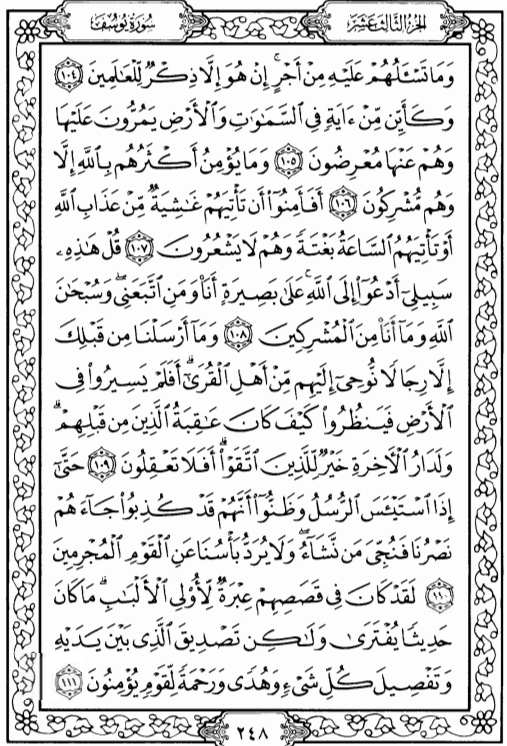 سورة يوسف
الجزء الثالث عشر
وَمَا تَسْـَٔلُهُمْ عَلَيْهِ مِنْ أَجْرٍ ۚ إِنْ هُوَ إِلَّا ذِكْرٌ لِّلْعَـٰلَمِينَ ١٠٤
وَكَأَيِّن مِّنْ ءَايَةٍ فِى ٱلسَّمَـٰوَٰتِ وَٱلْأَرْضِ يَمُرُّونَ عَلَيْهَا
وَهُمْ عَنْهَا مُعْرِضُونَ ١٠٥ وَمَا يُؤْمِنُ أَكْثَرُهُم بِٱللَّهِ إِلَّا
وَهُم مُّشْرِكُونَ ١٠٦ أَفَأَمِنُوٓا۟ أَن تَأْتِيَهُمْ غَـٰشِيَةٌ مِّنْ عَذَابِ ٱللَّهِ
أَوْ تَأْتِيَهُمُ ٱلسَّاعَةُ بَغْتَةً وَهُمْ لَا يَشْعُرُونَ ١٠٧ قُلْ هَـٰذِهِۦ
سَبِيلِىٓ أَدْعُوٓا۟ إِلَى ٱللَّهِ ۚ عَلَىٰ بَصِيرَةٍ أَنَا۠ وَمَنِ ٱتَّبَعَنِى ۖ وَسُبْحَـٰنَ
ٱللَّهِ وَمَآ أَنَا۠ مِنَ ٱلْمُشْرِكِينَ ١٠٨ وَمَآ أَرْسَلْنَا مِن قَبْلِكَ
إِلَّا رِجَالًا نُّوحِىٓ إِلَيْهِم مِّنْ أَهْلِ ٱلْقُرَىٰٓ ۗ أَفَلَمْ يَسِيرُوا۟ فِى
ٱلْأَرْضِ فَيَنظُرُوا۟ كَيْفَ كَانَ عَـٰقِبَةُ ٱلَّذِينَ مِن قَبْلِهِمْ ۗ
وَلَدَارُ ٱلْـَٔاخِرَةِ خَيْرٌ لِّلَّذِينَ ٱتَّقَوْا۟ ۗ أَفَلَا تَعْقِلُونَ ١٠٩ حَتَّىٰٓ
إِذَا ٱسْتَيْـَٔسَ ٱلرُّسُلُ وَظَنُّوٓا۟ أَنَّهُمْ قَدْ كُذِبُوا۟ جَآءَهُمْ
نَصْرُنَا فَنُجِّىَ مَن نَّشَآءُ ۖ وَلَا يُرَدُّ بَأْسُنَا عَنِ ٱلْقَوْمِ ٱلْمُجْرِمِينَ
١١٠ لَقَدْ كَانَ فِى قَصَصِهِمْ عِبْرَةٌ لِّأُو۟لِى ٱلْأَلْبَـٰبِ ۗ مَا كَانَ
حَدِيثًا يُفْتَرَىٰ وَلَـٰكِن تَصْدِيقَ ٱلَّذِى بَيْنَ يَدَيْهِ
وَتَفْصِيلَ كُلِّ شَىْءٍ وَهُدًى وَرَحْمَةً لِّقَوْمٍ يُؤْمِنُونَ ١١١
٢٤٨